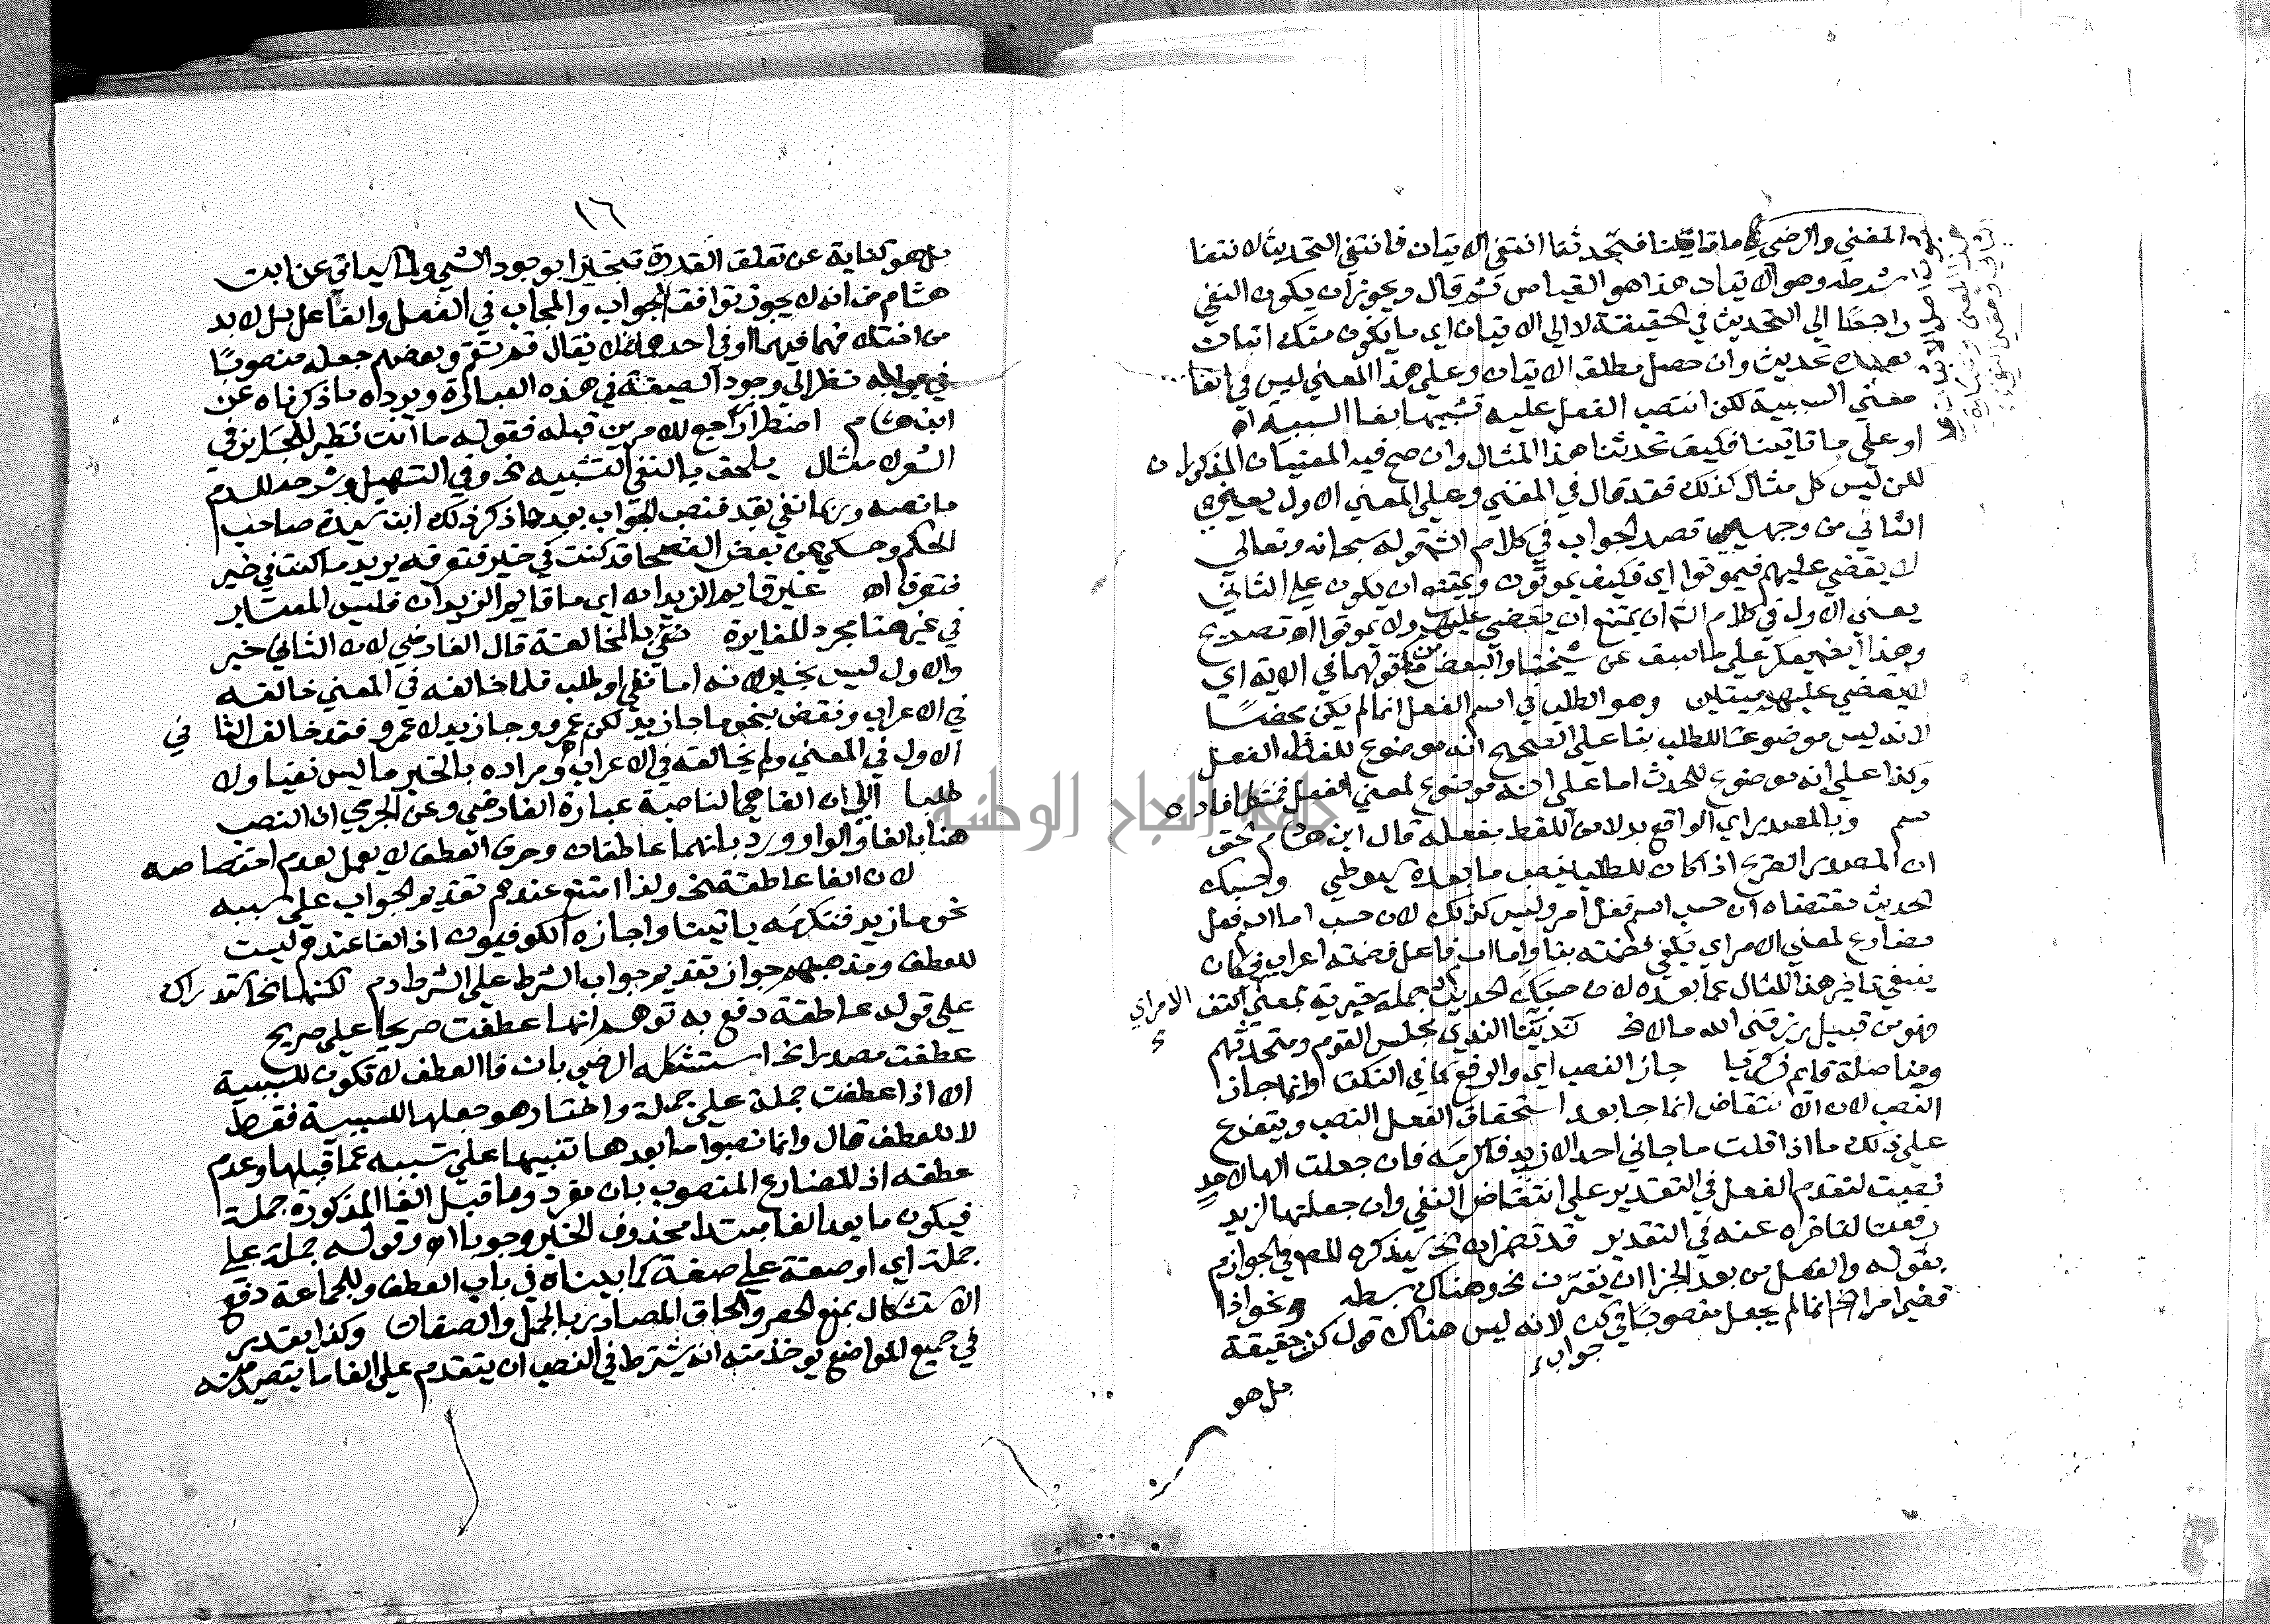 المغني والرضي في ما تاتينا فتحدثنا انتفى الاتيان فانتفى التحديث لانتفا
شرطه وهو الاتيان هذا هو القياس ثم قال ويجوز ان يكون النفي
راجعا الى التحديث في الحقيقة لا الى الاتيان اي ما يكون منك اتيان
بعده تحديث وان حصل مطلق الاتيان وعلى هذا المعنى ليس في الفا
معنى السببية لكن انتصب الفعل عليه تشبيها بفا السببية اه
او على ما تاتينا فكيف تحدثنا هذا المثال وان صح فيه المعنيان المذكوران
لكن ليس كل مثال كذلك فقد قال في المغني وعلى المعنى الاول يعني
الثاني من وجهي قصد الجواب في كلام الش قوله سبحانه وتعالى
لا يقضى عليهم فيموتوا اي فكيف يموتون ويمتنع ان يكون على الثاني
يعني الاول في كلام الش ان يمتنع ان يقضى عليهم ولا يموتوا اه تصريح
وهذا ايضا يعكر على ما سبق عن شيخنا والبعض من قولهما في الاية اي
لا يقضى عليهم ميتين وهو الطلب في اسم الفعل انما لم يكن محضا
لانه ليس موضوعا للطلب بنا على الصحيح انه موضوع للفظ الفعل
وكذا على انه موضوع للحدث اما على انه موضوع لمعنى الفعل فمشكل افاده
سم وبالمصدر اي الواقع بدلا من اللفظ بفعله قال ابن هشام الحق
ان المصدر الصريح اذا كان للطلب ينصب ما بعده سيوطي وحسبك
الحديث مقتضاه ان حسب اسم فعل امر وليس كذلك لان حسب اما اسم فعل
مضارع لمعنى الامر اي يكفي فضمته بنا واما اسم فاعل فضمته اعراب فكان
ينبغي تاخير هذا المثال عما بعده لان حسبك الحديث جملة خبرية بمعنى اكتف الامر اي
فهو من قبيل رزقني الله مالا الخ نديتنا الندي مجلس القوم ومتحدثهم
ومناضلة قايم جاز النصب اي والرفع كما في النكت وانما جاز
النصب لان الانتقاض انما جا بعد استحقاق الفعل النصب ويتفرع
على ذلك ما اذا قلت ما جاني احد الا زيد فاكرمه فان جعلت الها لاحد
نصبت لتقدم الفعل في التقدير على انتقاض النفي وان جعلتها لزيد
رفعت لتاخره عنه في التقدير قد تضمر ان الخ سيذكره المص في الجوازم
بقوله والفعل من بعد الجزا ان يقترن الخ وهناك بسطه ونحو اذا
قضى امرا الخ انما لم يجعل منصوبا في كن لانه ليس هناك قول كن حقيقة
جواب
بل هو
١٦
بل هو كناية عن تعلق القدرة تنجيزا بوجود الشي ولما سياتي عن ابن
هشام من انه لا يجوز توافق الجواب والمجاب في الفعل والفاعل بل لا بد
من اختلافهما فيهما او في احدهما فلا يقال قم تقم وبعضهم جعله منصوبا
في جوابه نظرا الى وجود الصيغة في هذه العبارة ويرده ما ذكرناه عن
ابن هشام اضطرارا راجع للامرين قبله فقوله ما انت نظير للجايز في
السعة مثال يلحق بالنفي التشبيه الخ وفي التسهيل وشرحه للدم
ما نصه وربما نفي بقد فنصب الجواب بعدها ذكر ذلك ابن سيده صاحب
المحكم وحكي عن بعض الفصحا قد كنت في خير فتعرفه يريد ما كنت في خير
فتعرفه اه غير قايم الزيدان اي ما قايم الزيدان فليس المعتبر
في غير هنا مجرد المغايرة نصب بالمخالفة قال الفارضي لان الثاني خبر
والاول ليس بخبر لانه اما نفي او طلب فلما خالفه في المعنى خالفه
في الاعراب ونقض بنحو ما جا زيد لكن عمرو وجا زيد لا عمرو فقد خالف الثا في
الاول في المعنى ولم يخالفه في الاعراب ومراده بالخبر ما ليس نفيا ولا
طلبا الى ان الفا هي الناصبة عبارة الفارضي وعن الجرمي ان النصب
هنا بالفا والواو ورد بانهما عاطفان وحرف العطف لا يعمل لعدم اختصاصه
لان الفا عاطفة الخ ولذا امتنع عندهم تقديم الجواب على سببه
نحو ما زيد فنكرمه ياتينا واجازه الكوفيون اذ الفا عندهم ليست
للعطف ومذهبهم جواز تقديم جواب الشرط على الشرط دم لكنها الخ استدراك
على قوله عاطفة دفع به توهم انها عطفت صريحا على صريح
عطفت مصدرا الخ استشكله الرضي بان فا العطف لا تكون للسببية
الا اذا عطفت جملة على جملة واختار هو جعلها للسببية فقط
لا للعطف قال وانما نصبوا ما بعدها تنبيها على تسببه عما قبلها وعدم
عطفه اذ المضارع المنصوب بان مفرد وما قبل الفا المذكورة جملة
فيكون ما بعد الفا مبتدا محذوف الخبر وجوبا اه وقوله جملة على
جملة اي او صفة على صفة كما بيناه في باب العطف وللجماعة دفع
الاستشكال بمنع الحصر والحاق المصادر بالجمل والصفات وكذا يقدر
في جميع المواضع يوخذ منه انه يشترط في النصب ان يتقدم على الفا ما يتصيد منه